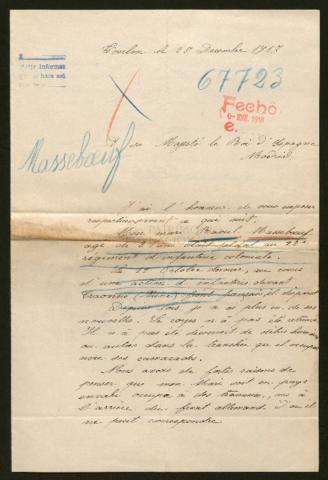 Toulon le 28 Decembre 1917
67723
Fechó
6- ENE. 1918
e.
Masseboeuf
A sa Majesté le Roi d'Espagne
Madrid
J'ai l'honneur de vous exposer
respectueusement ce qui suit.
Mon mari Masseboeuf
age de ans était soldat au 22e
régiment d'infanterie coloniale.
Le 12 Octobre dernier, au cours
d'une action d'infanterie devant
(Aisne) front français, il disparut
Depuis lors, je n'ai plus eu de ses
nouvelles. Le corps n'a pas été retrouvé
Il n'a pas été découvert de débris humains
ou autres dans la tranchée qu'il occupait
avec ses camarades.
Nous avons de fortes raisons de
penser que mon Mari soit en pays
envahi occupé à des travaux, ou à
l'arrière du front allemand d'où il
ne peut correspondre